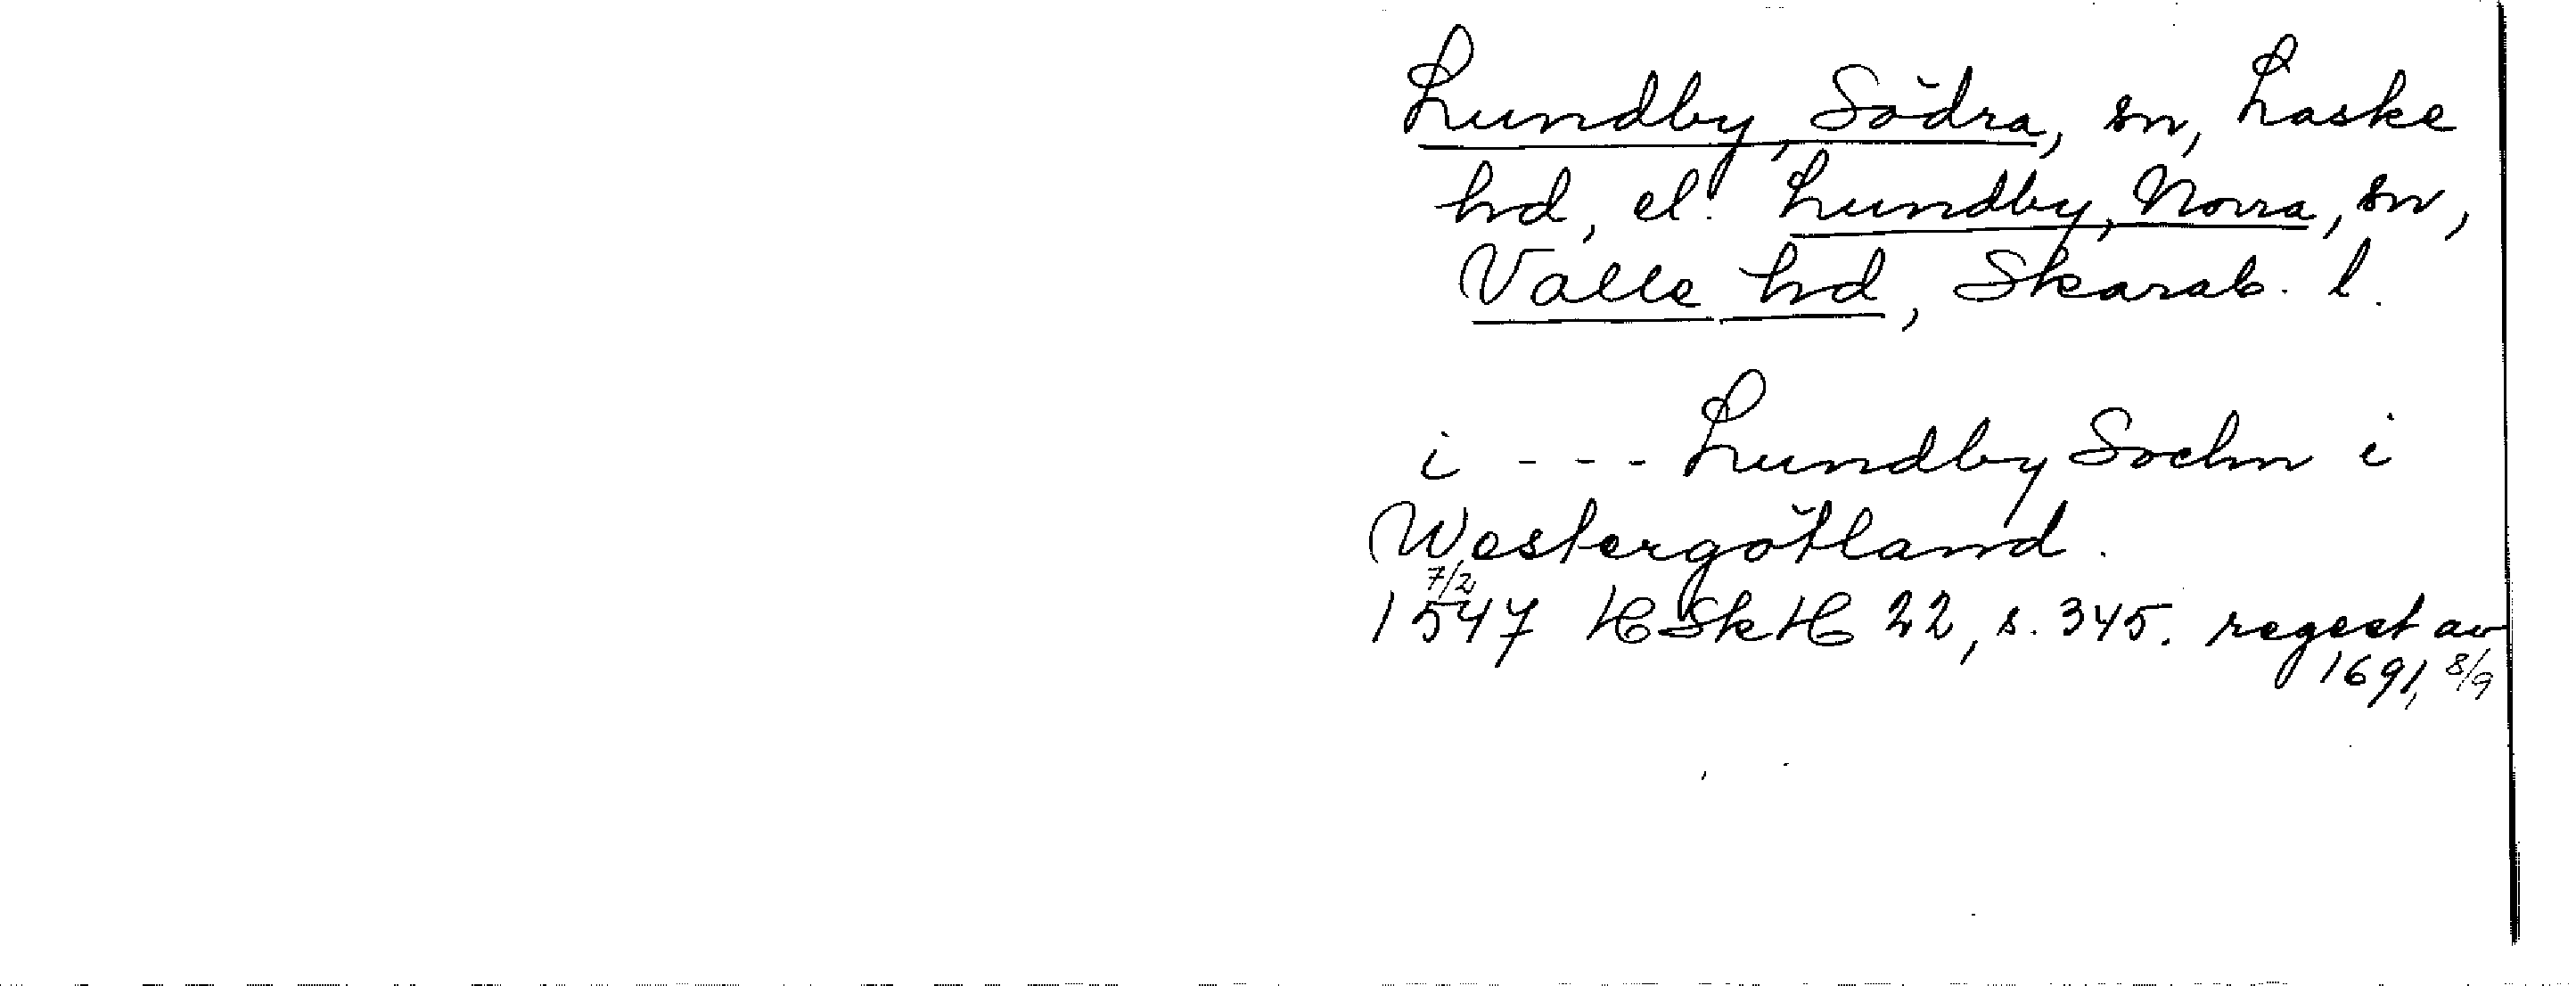 Lundby, Södra, sn, Laske
hd, el. Lundby, Norra, sn,
Valle hd, Skarab. l.
i --- Lundby Sochn i
Westergötland.
7/2
1547 HSkH 22, s. 345. regest av
1691, 8/9